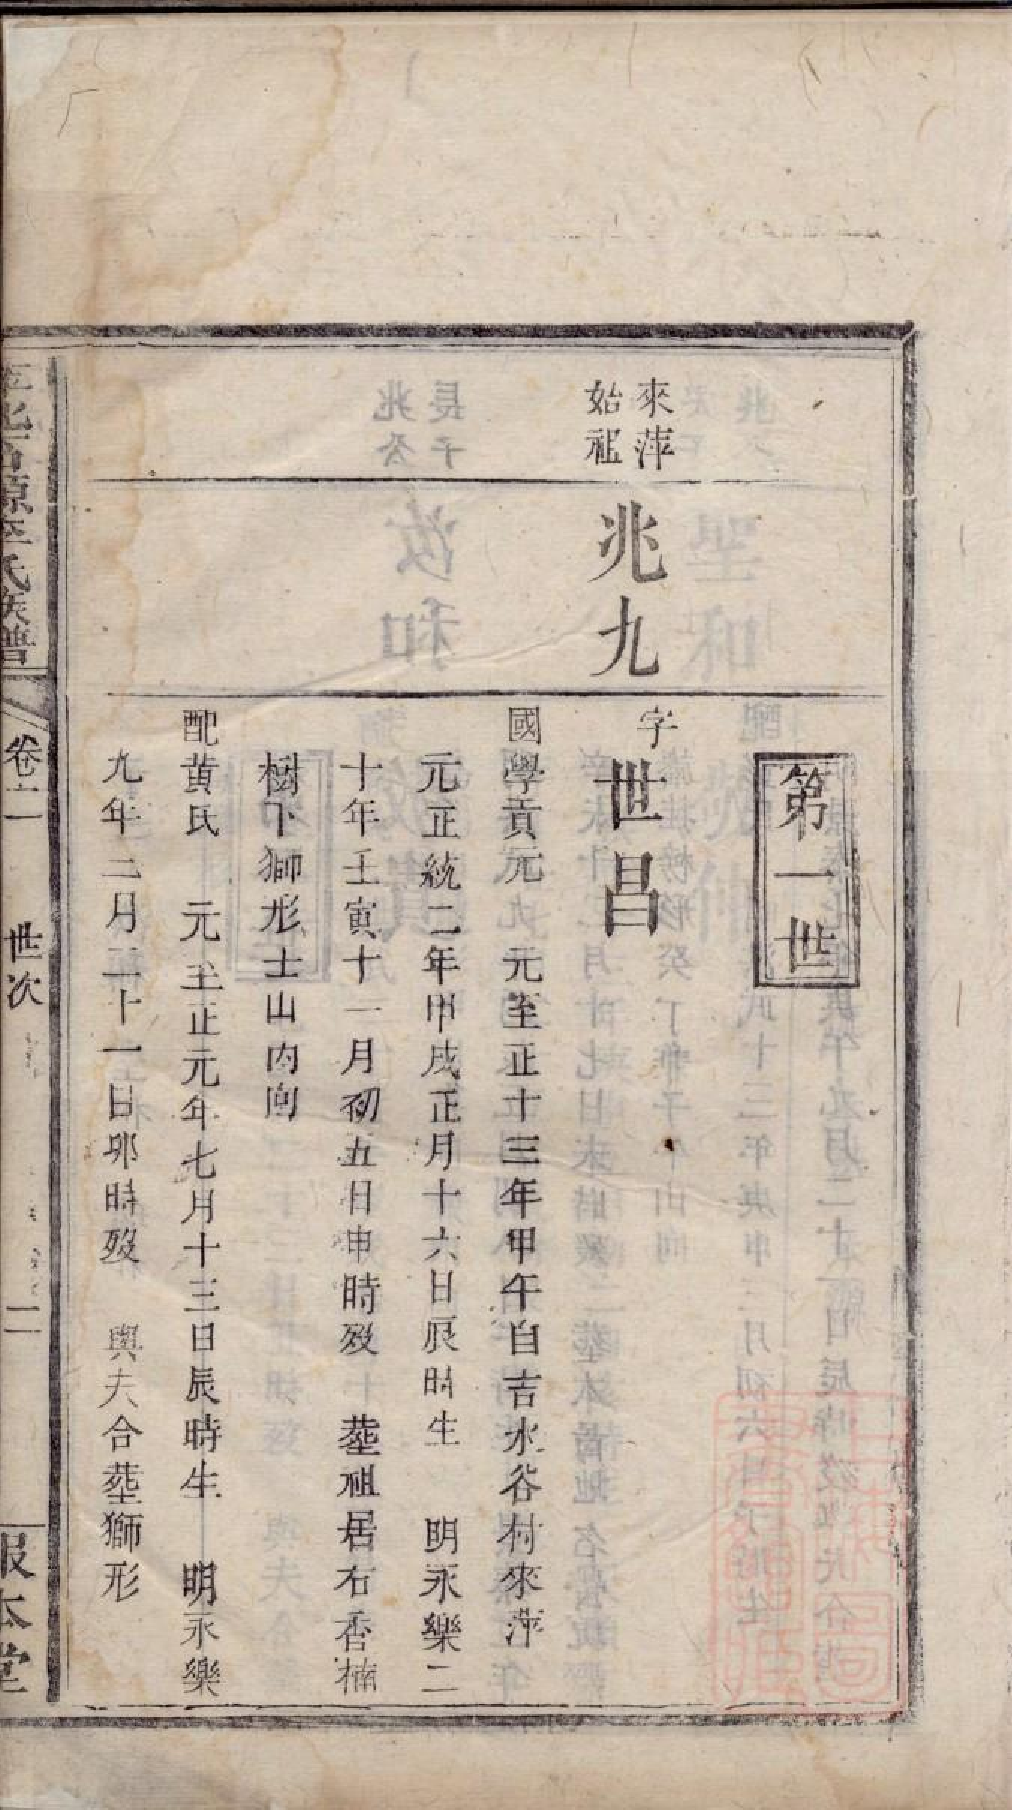 第一世
來萍
始祖
兆九
字
世昌
國學貢元 元至正十三年甲午自吉水谷村來萍
元正統二年甲戌正月十六日辰時生 明永樂二
十年壬寅十一月初五日申時歿 塟祖居右香楠
樹下獅形士山內向
配黃氏 元至正元年七月十三日辰時生 明永樂
九年二月二十一日卯時歿 與夫合塟獅形
北 源李氏族譜
卷 一 世次 二
報本堂